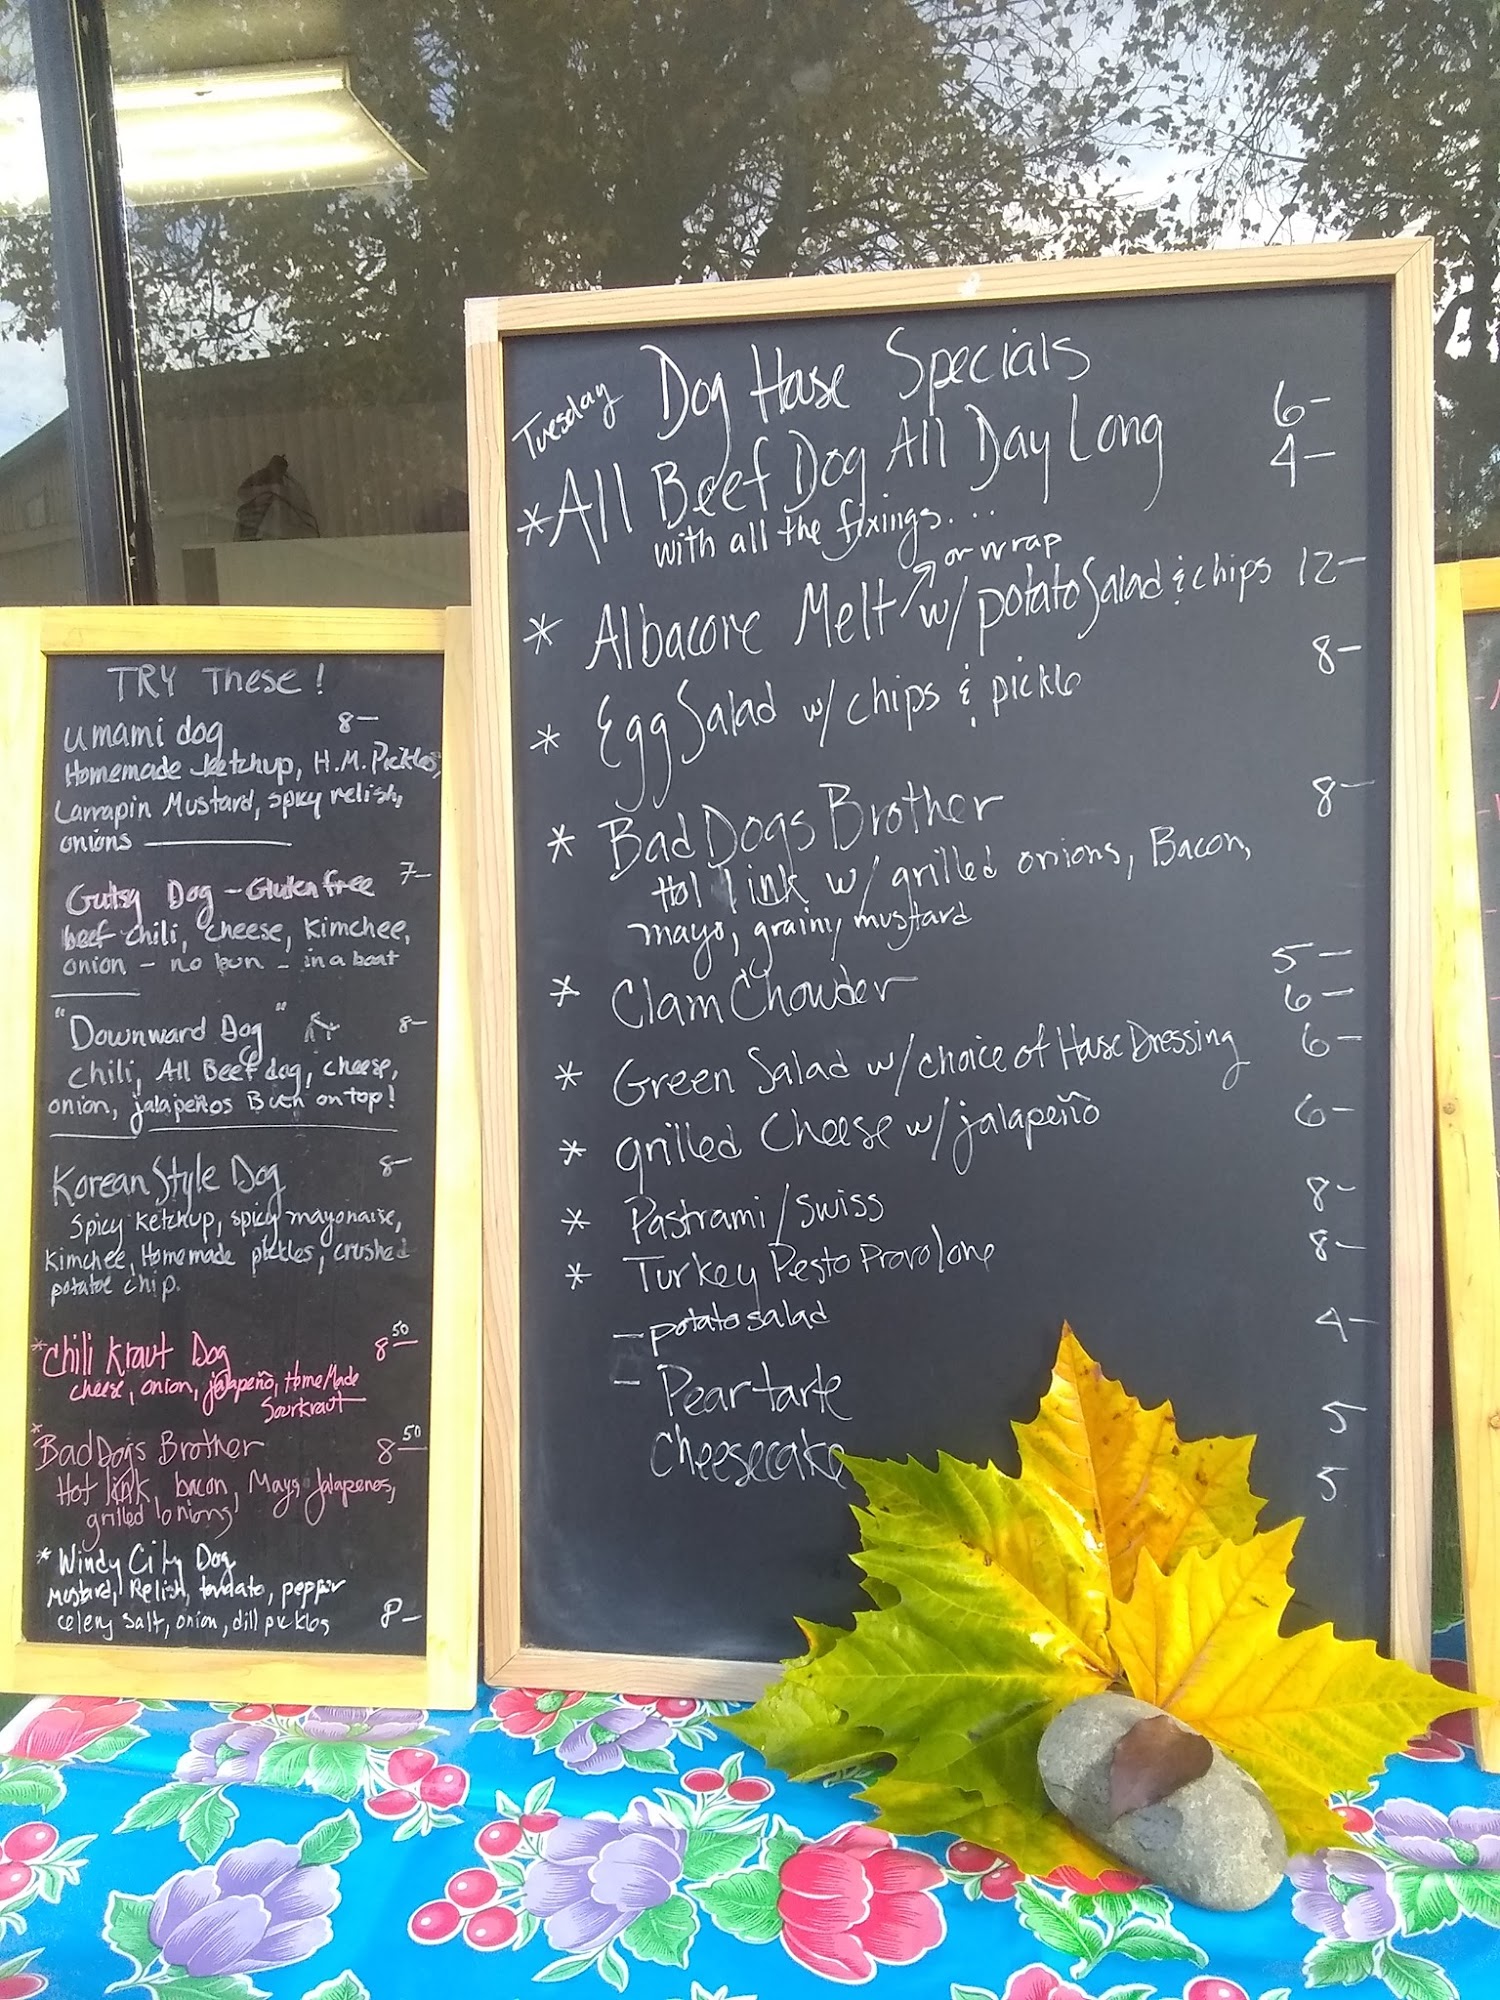 TRY These!
umami dog 8-
Homemade ketchup, H.M. Pickles,
Larrapin Mustard, spicy relish,
onions
Gutsy Dog - Gluten free 7-
beef chili, cheese, kimchee,
onion - no bun - in a boat
"Downward Dog" 8-
chili, All Beef dog, cheese,
onion, jalapeños Bun on top!
Korean Style Dog 8-
Spicy ketchup, spicy mayonaise,
kimchee, Homemade pickles, crushed
potatoe chip.
*Chili Kraut Dog 8 50
cheese, onion, jalapeño, HomeMade
Sourkraut
*Bad Dogs Brother 8 50
Hot link, bacon, Mayo, Jalapenos,
grilled onions
*Windy City Dog
Mustard, Relish, tomato, pepper
celery salt, onion, dill pickles 8-
Tuesday Dog House Specials
*All Beef Dog All Day Long 6-
4-
with all the fixings...
or wrap
* Albacore Melt w/ potato Salad & chips 12-
* Egg Salad w/ chips & pickle 8-
* Bad Dogs Brother 8-
Hot link w/ grilled onions, Bacon,
mayo, grainy mustard
* Clam Chowder 5-
6-
* Green Salad w/ choice of House Dressing 6-
* grilled Cheese w/ jalapeño 6-
* Pastrami/Swiss 8-
* Turkey Pesto Provolone 8-
- potato salad 4-
- Pear tarte 5
Cheesecake 5